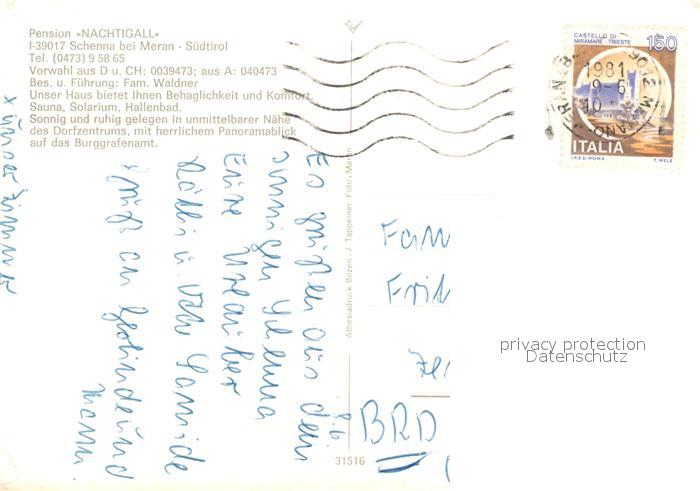 Pension »NACHTIGALL«
I-39017 Schenna bei Meran - Südtirol
Tel. (0473) 9 58 65
Vorwahl aus D u. CH: 0039473; aus A: 040473
Bes. u. Führung: Fam. Waldner
Unser Haus bietet Ihnen Behaglichkeit und Komfort.
Sauna, Solarium, Hallenbad.
Sonnig und ruhig gelegen in unmittelbarer Nähe
des Dorfzentrums, mit herrlichem Panoramablick
auf das Burggrafenamt.
x unser Zimmer
8.6.
Es grüßen aus dem
sonnigen Schenna
Eure Urlauber
u.
Gruß an
Mann.
Athesiadruck Bozen - J. Tappeiner Foto - Meran
31516
CASTELLO DI
MIRAMARE - TRIESTE
150
ITALIA
I.P.Z.S. - ROMA
T. MELE
1981
9-6
10
Fam
BRD
privacy protection
Datenschutz